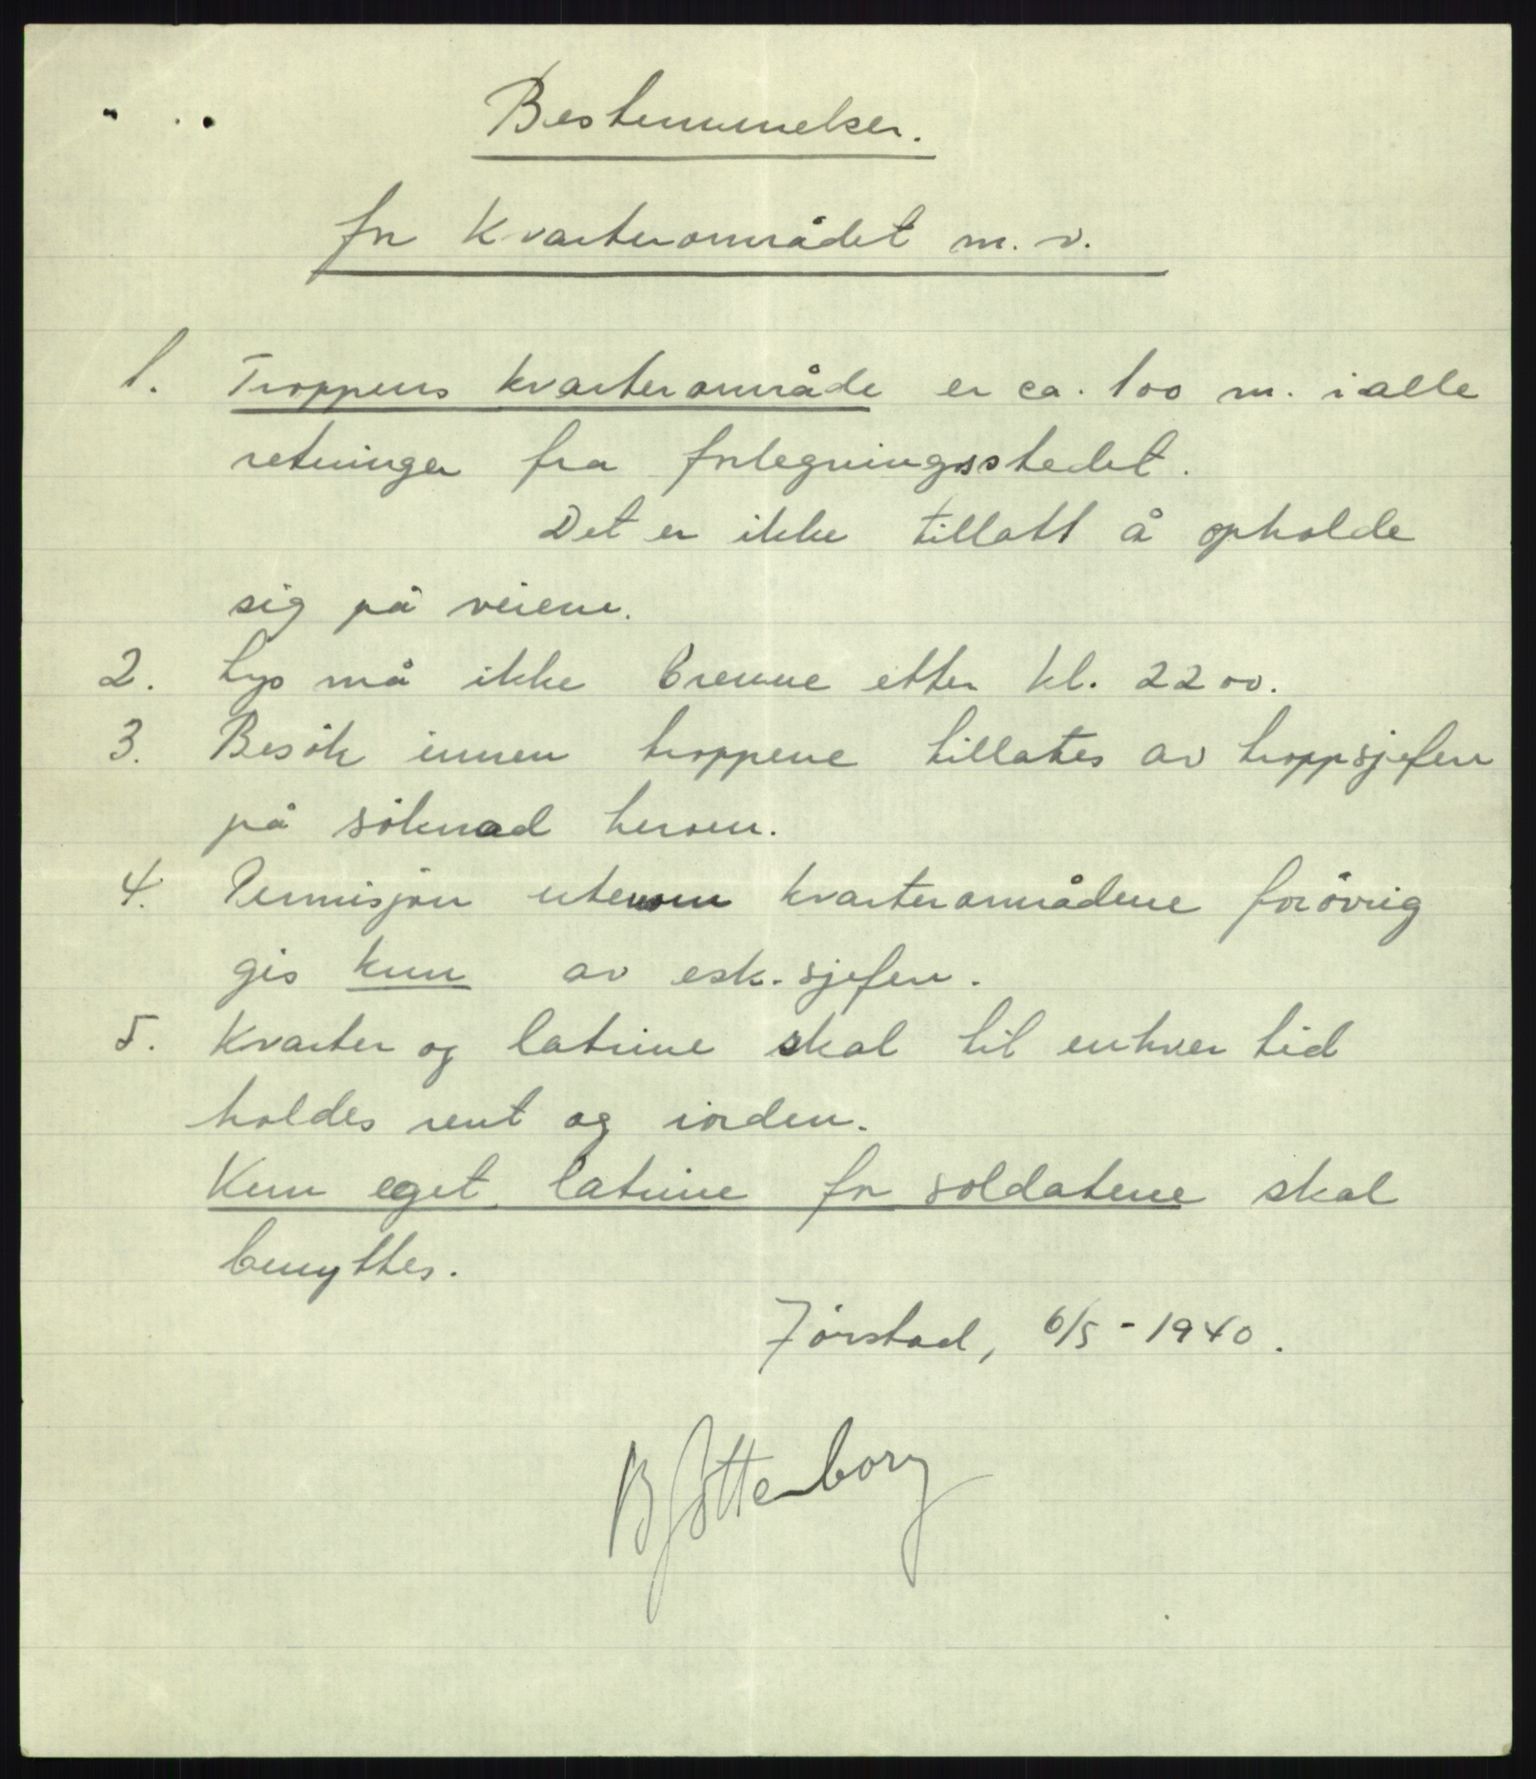 Bestemmelser.
for kvarterområdet m. v.
1. Troppens kvarterområde er ca. 100 m. i alle
retninger fra forlegningsstedet.
Det er ikke tillatt å opholde
sig på veiene.
2. Lys må ikke brenne etter kl. 2200.
3. Besøk innen troppene tillates av troppsjefen
på søknad herom.
4. Permisjon utenom kvarterområdene forøvrig
gis kun av esk. sjefen.
5. Kvarter og latrine skal til enhver tid
holdes rent og iorden.
Kun eget latrine for soldatene skal
benyttes.
Jørstad, 6/5 - 1940.